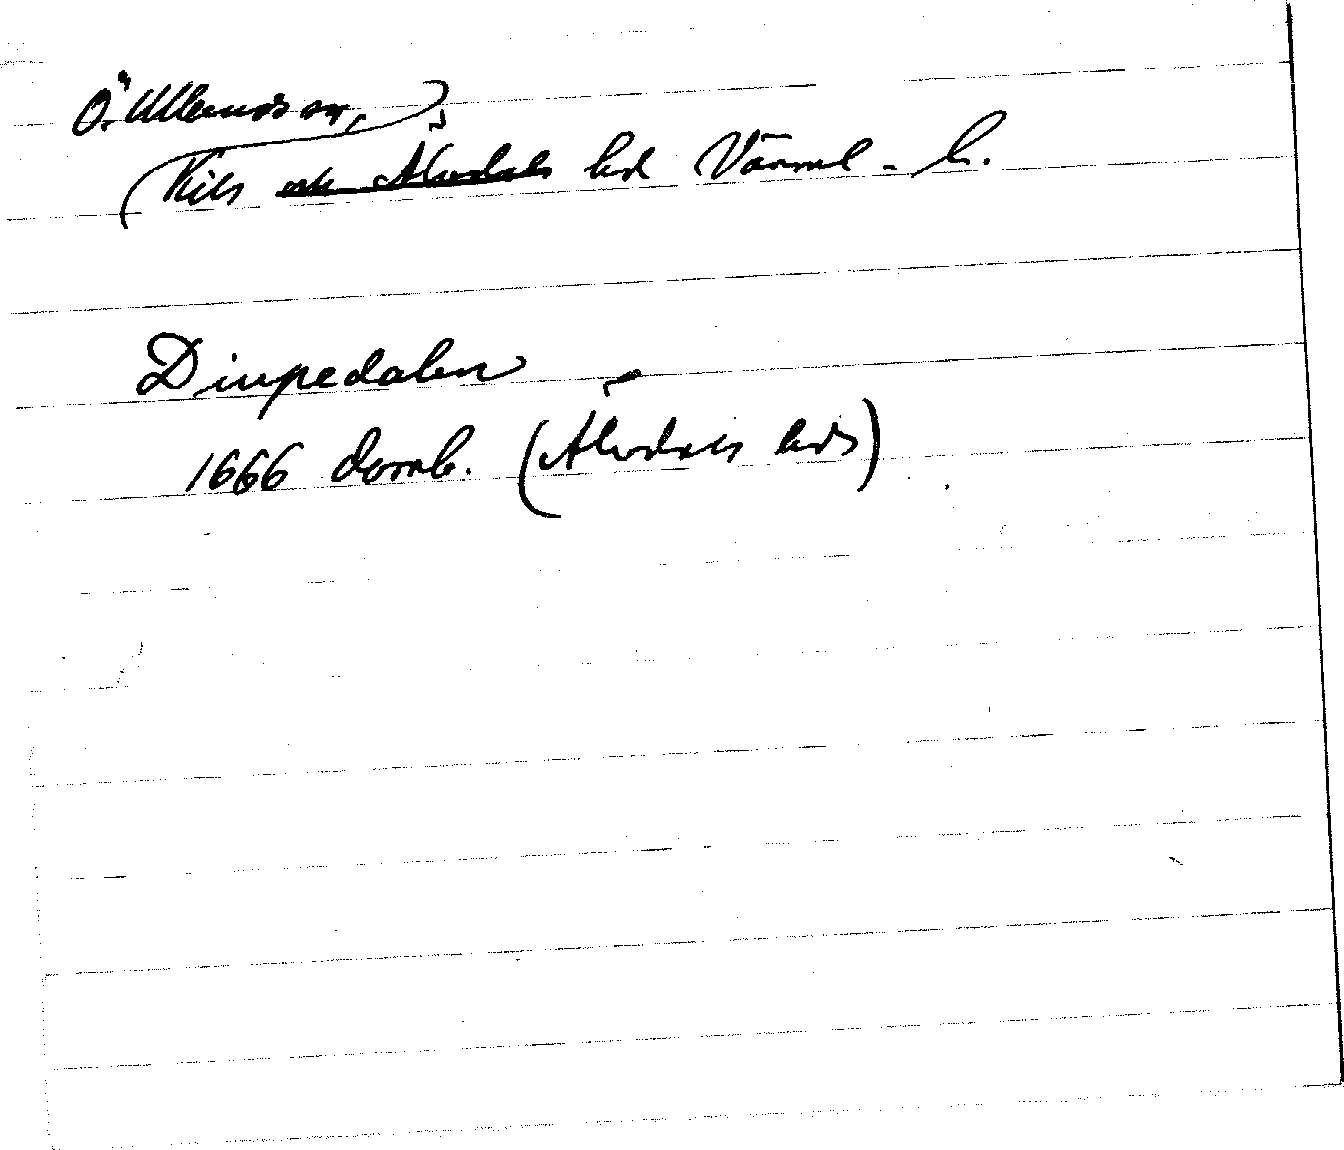 Ö. Ullerud sn,
Kils och Älvdals hd Värml. l.
Diupedalen
1666 domb. (Älvdals hds)